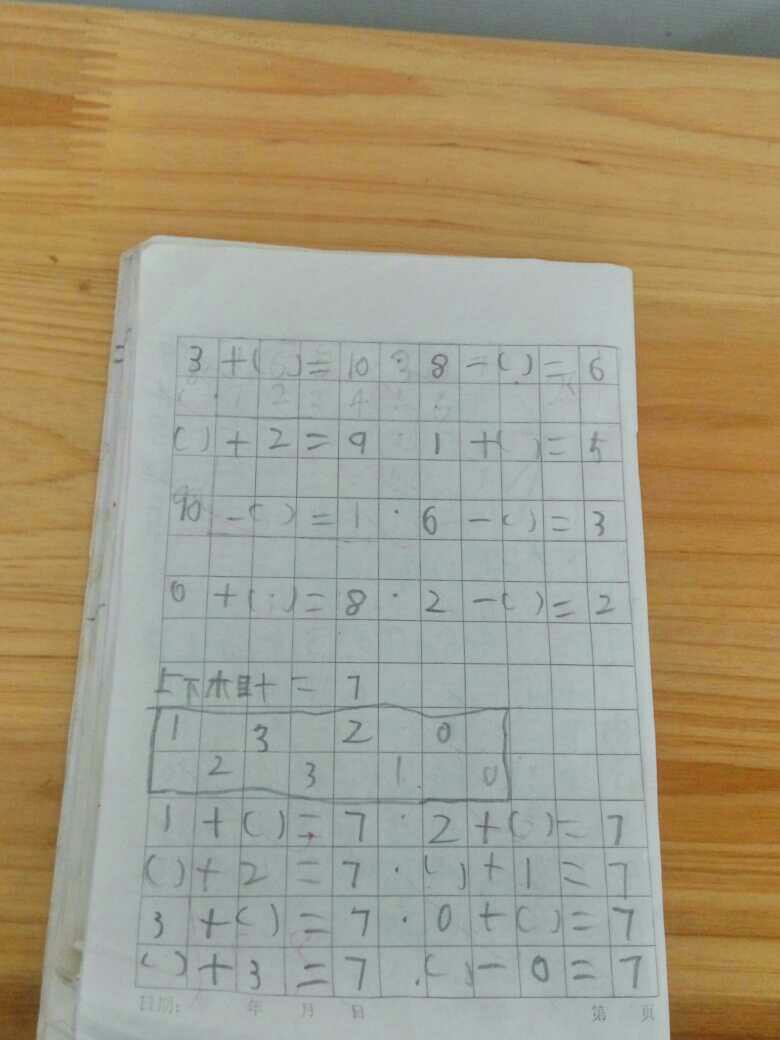 3 + ( ) = 10 8 - ( ) = 6
( ) + 2 = 9 1 + ( ) = 5
10 - ( ) = 1 · 6 - ( ) = 3
0 + ( ) = 8 · 2 - ( ) = 2
上下木目十 = 7
1 3 2 0
2 3 1 0
1 + ( ) = 7 · 2 + ( ) = 7
( ) + 2 = 7 · ( ) + 1 = 7
3 + ( ) = 7 · 0 + ( ) = 7
( ) + 3 = 7 . ( ) - 0 = 7
日期: 年 月 日 第 页